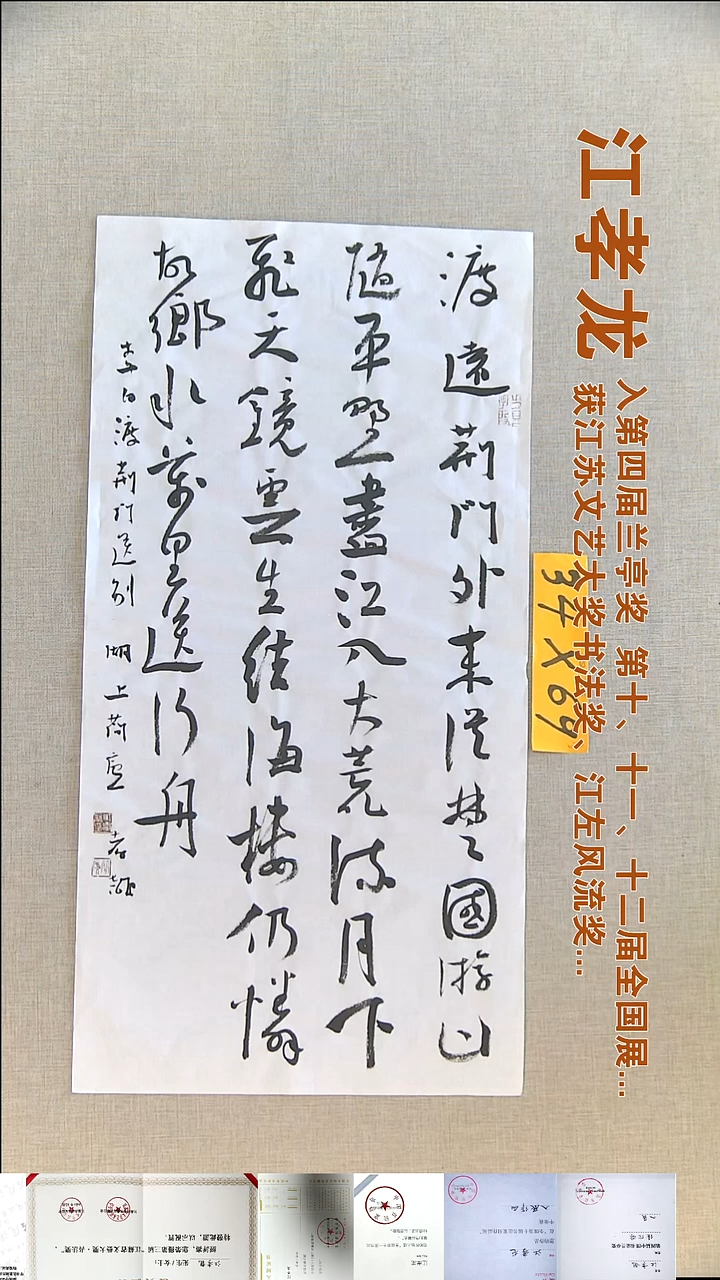 江孝龙
入第四届兰亭奖 第十、十一、十二届全国展...
获江苏文艺大奖书法奖、江左风流奖...
34X69
渡遠荆門外来從楚國游山
隨平野盡江入大荒流月下
飛天鏡雲生结海楼仍憐
故鄉水萬里送行舟
李白渡荆门送别 湖上荷廬 孝龍